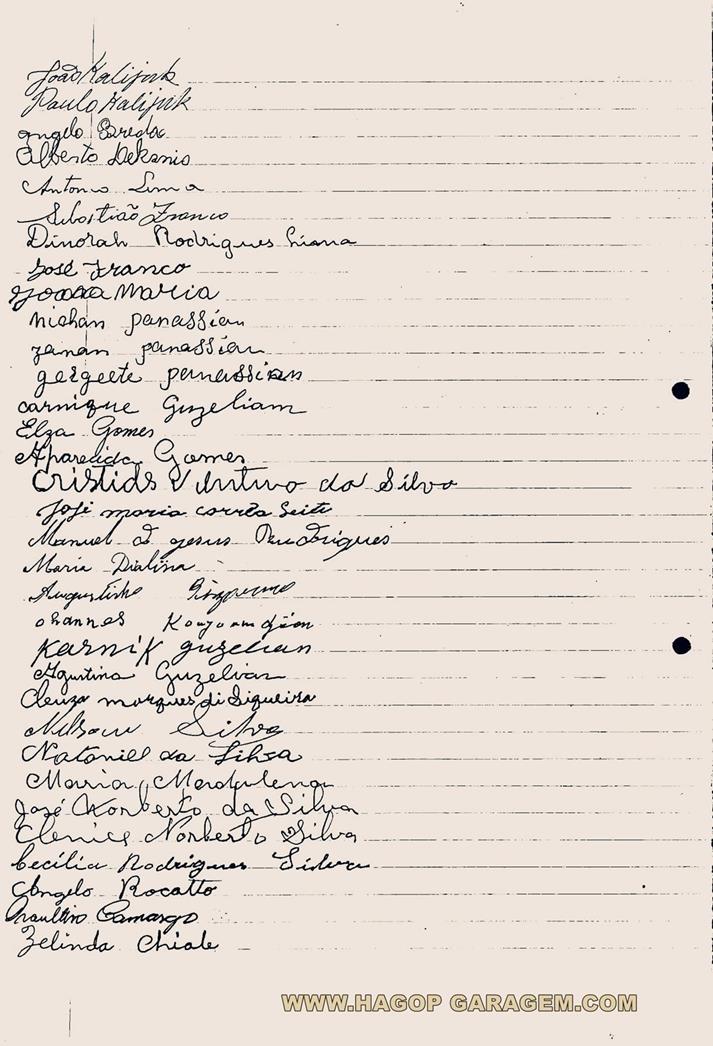 João Kalijnk
Paulo Kalijnk
angelo
Alberto Dekanio
Antonio Lima
Sebastião Franco
Dinorah Rodrigues Liana
José Franco
Joana Maria
nichan panassian
zanan panassian
geegeete panassian
carnique Guzeliam
Elza Gomes
Aparecida Gomes
da Silva
José maria corrêa Leite
Manuel d jesus Rudrigues
Maria Dialina
Augustinho
ohannes Kouyoumdjian
Karnik guzelian
Agustina Guzelian
Cleuza marques di Siqueira
Nelson Silva
Nataniel da Silva
Maria Madalena
José Norberto da Silva
Clenice Norberto Silva
Cecília Rodrigues
Angelo Rocatto
Camargo
Zelinda Chiale
WWW.HAGOP GARAGEM.COM